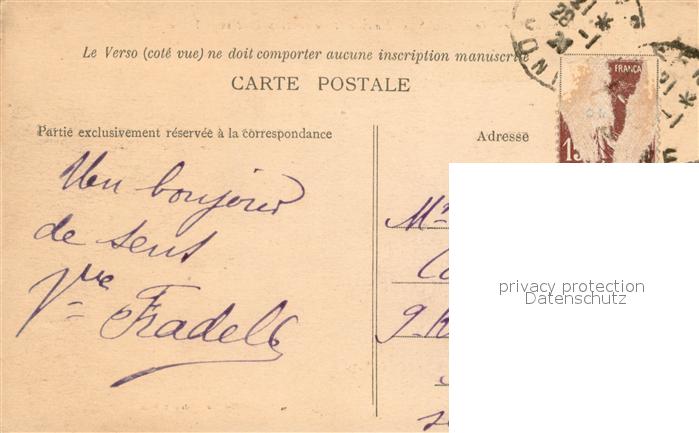 Le Verso (coté vue) ne doit comporter aucune inscription manuscrite
CARTE POSTALE
Partie exclusivement réservée à la correspondance
Adresse
FRANÇA
15
21
28
Un bonjour
de sens
Vve Fradel
M
9
privacy protection
Datenschutz